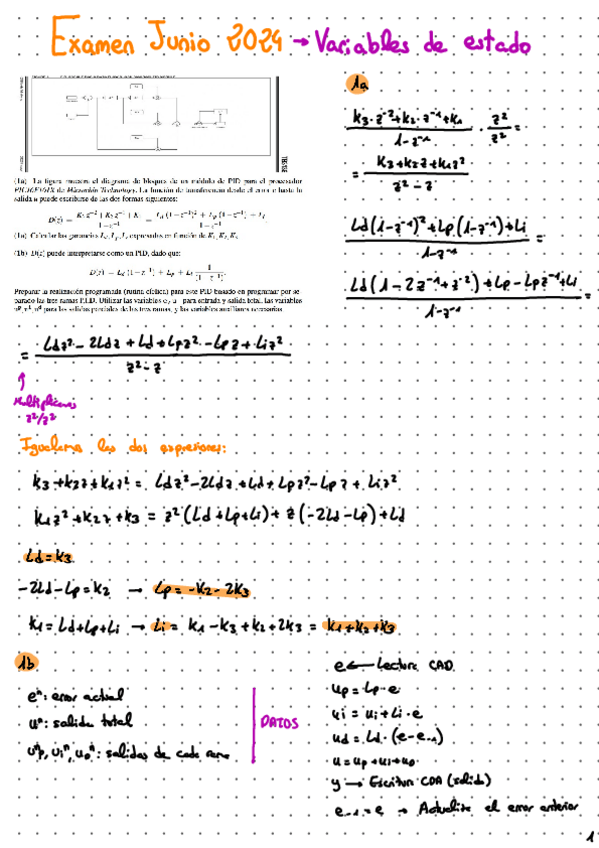 Examen Junio 2024 → Variables de estado
(1a) La figura muestra el diagrama de bloques de un módulo de PID para el procesador
de Microchip Technology. La función de transferencia desde el error e hasta la
salida u puede escribirse de las dos formas siguientes:
(1a) Calcular las ganancias L_d, L_p, L_i expresadas en función de K_1, K_2, K_3
(1b) D(z) puede interpretarse como un PID, dado que:
D(z) = L_d (1 − z^-1) + L_p + L_i 1/(1 − z^-1).
Preparar la realización programada (rutina cíclica) para este PID basado en programar por se-
parado las tres ramas P,I,D. Utilizar las variables e, u para entrada y salida total, las variables
para las salidas parciales de las tres ramas, y las variables auxiliares necesarias
1a
(k3·z^-2 + k2·z^-1 + k1)/(1-z^-1) · z²/z² =
= (k3+k2z+k1z²)/(z²-z)
(Ld(1-z^-1)² + Lp(1-z^-1) + Li)/(1-z^-1) =
(Ld(1-2z^-1+z^-2) + Lp - Lpz^-1 + Li)/(1-z^-1) =
= (Ldz² - 2Ldz + Ld + Lpz² - Lpz + Liz²)/(z²-z)
↑
Multiplicamos
z²/z²
Igualamos las dos expresiones:
k3+k2z+k1z² = Ldz²-2Ldz+Ld+Lpz²-Lpz+Liz²
k1z²+k2z+k3 = z²(Ld+Lp+Li)+z(-2Ld-Lp)+Ld
Ld=k3
-2Ld-Lp=k2 → Lp=-k2-2k3
k1=Ld+Lp+Li → Li= k1-k3+k2+2k3 = k1+k2+k3
1b
eⁿ: error actual
uⁿ: salida total
uⁿp, uiⁿ, uDⁿ: salidas de cada rama
DATOS
e ← Lectura CAD
up = Lp·e
ui = ui+Li·e
ud = Ld·(e-e-1)
u = up+ui+uD
y → Escritura CDA (salida)
e-1 = e → Actualiza el error anterior
1